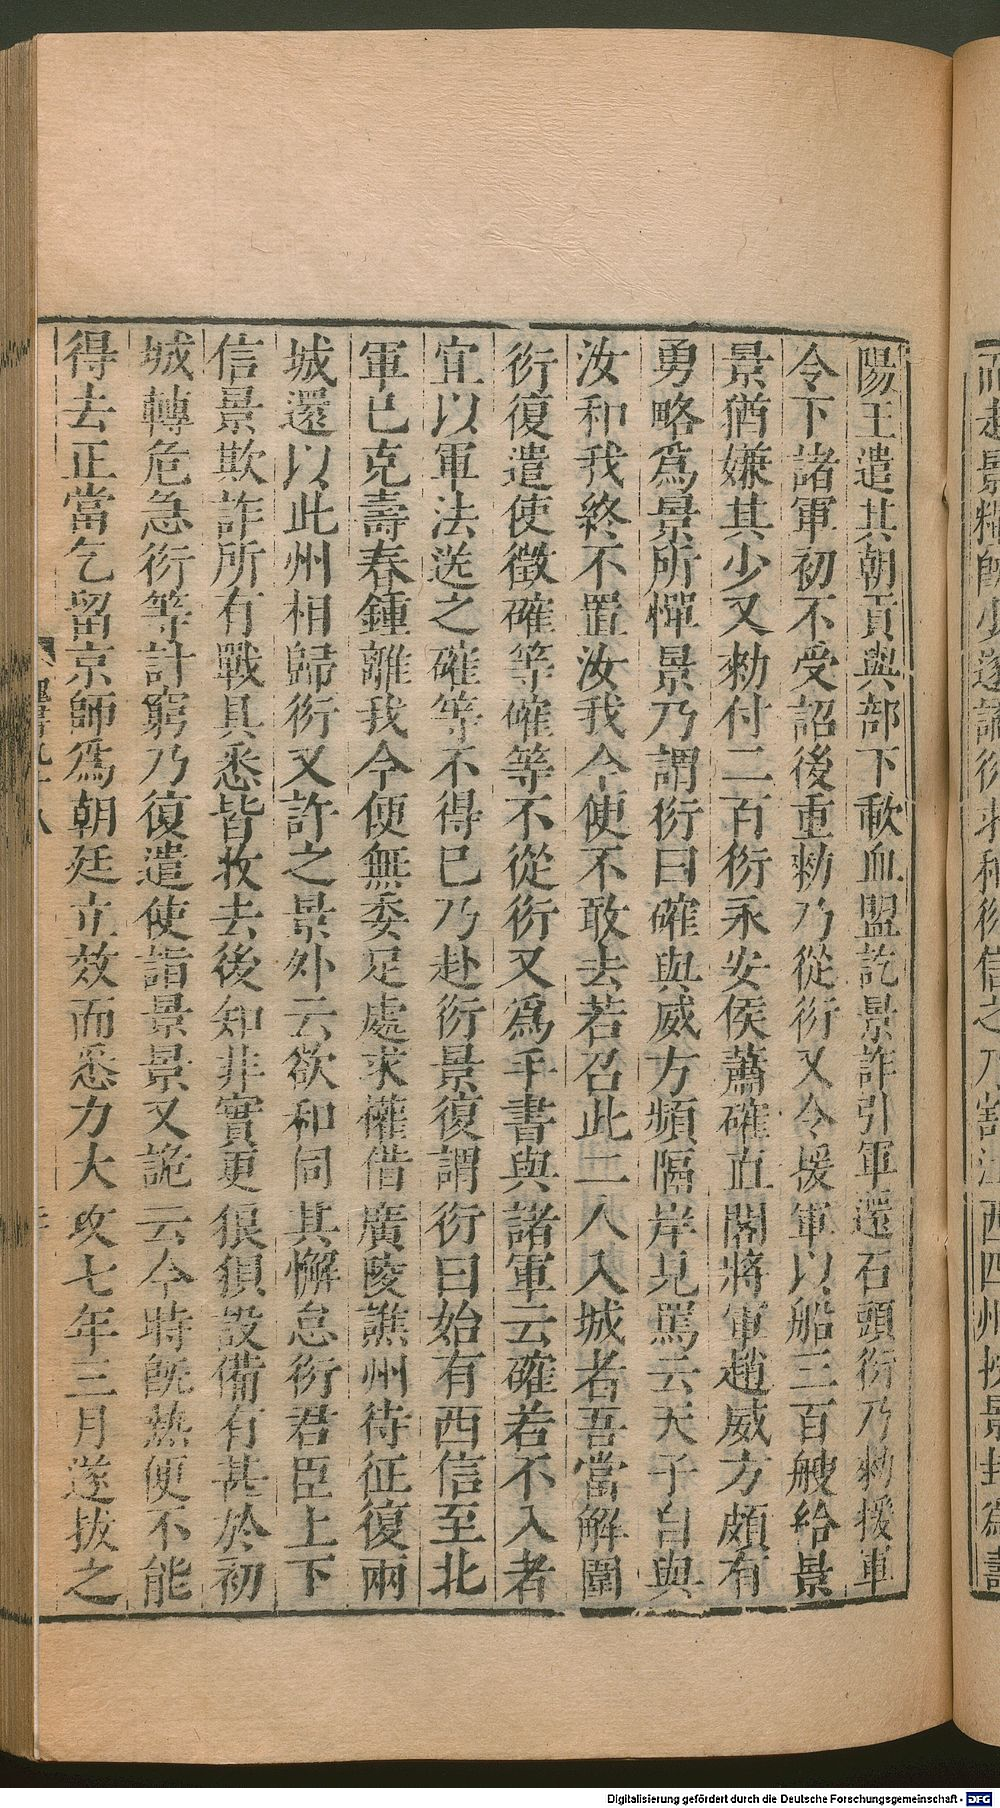 陽王遣其朝貢與部下歃血盟訖景詐引軍還石頭衍乃勑援軍
令下諸軍初不受詔後重勑乃從衍又令援軍以船三百艘給景
景猶嫌其少又勑付二百衍永安侯蕭確直閣將軍趙威方頗有
勇略爲景所憚景乃謂衍曰確與威方頻隔岸見罵云天子自與
汝和我終不置汝我今便不敢去若召此二人入城者吾當解圍
衍復遣使徵確等確等不從衍又爲手書與諸軍云確若不入者
宜以軍法送之確等不得已乃赴衍景復謂衍曰始有西信至北
軍已克壽春鍾離我今便無委足處求權借廣陵譙州待征復兩
城還以此州相歸衍又許之景外云欲和伺其懈怠衍君臣上下
信景欺詐所有戰具悉皆收去後知非實更狠狽設備有甚於初
城轉危急衍等計窮乃復遣使詣景景又詭云今時既熱便不能
得去正當乞留京師爲朝廷立效而悉力大攻七年三月遂拔之
魏書九十八
Digitalisierung gefördert durch die Deutsche Forschungsgemeinschaft - DFG